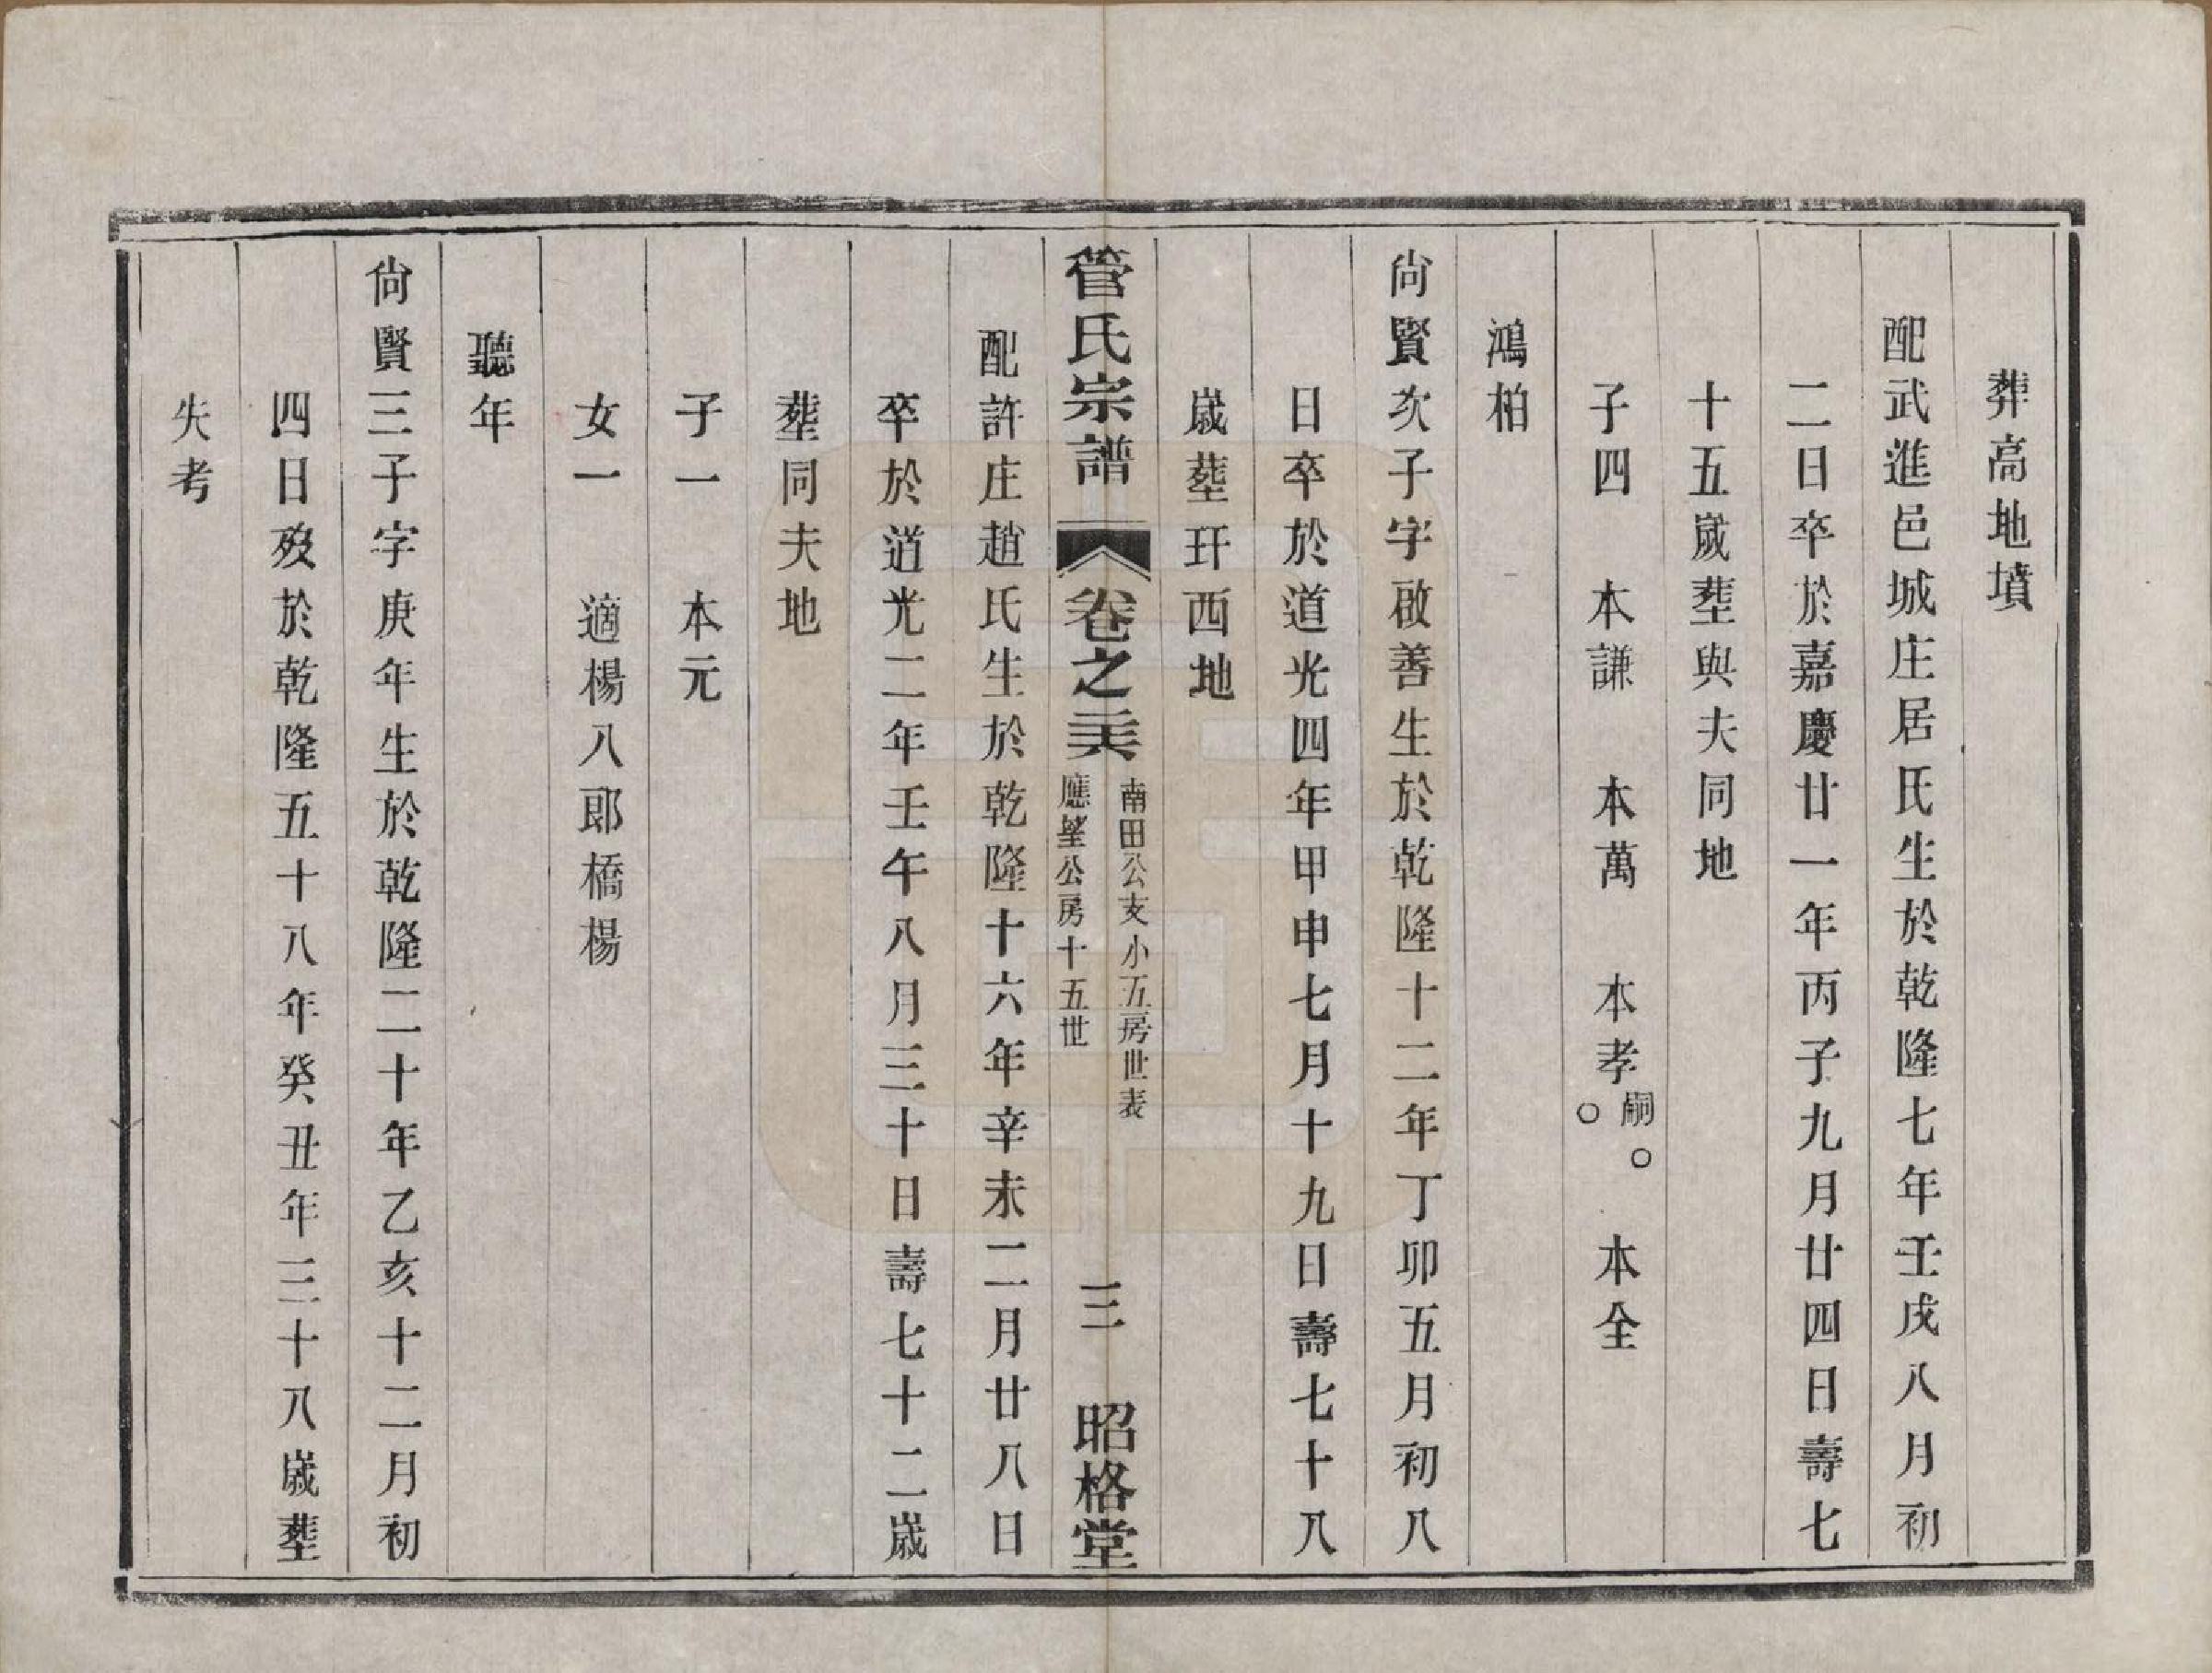 葬高地墳
配武進邑城庄居氏生於乾隆七年壬戌八月初
二日卒於嘉慶廿一年丙子九月廿四日壽七
十五歲塟與夫同地
子四　本謙　本萬　本孝嗣○○　本全
鴻柏
尙賢次子字啟善生於乾隆十二年丁卯五月初八
日卒於道光四年甲申七月十九日壽七十八
歲塟玕西地
管氏宗譜　卷之三六　南田公支小五房世表　應堃公房十五世　三　昭格堂
配許庄趙氏生於乾隆十六年辛未二月廿八日
卒於道光二年壬午八月三十日壽七十二歲
塟同夫地
子一　本元
女一　適楊八郎橋楊
聽年
尙賢三子字庚年生於乾隆二十年乙亥十二月初
四日歿於乾隆五十八年癸丑年三十八歲塟
失考